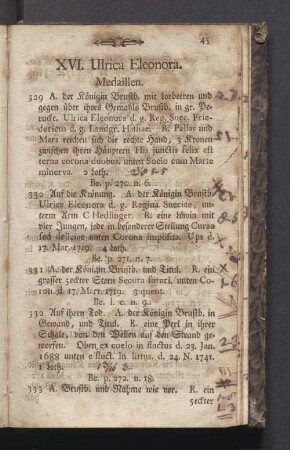 45
XVI. Ulrica Eleonora.
Medaillen.
329 A. der Königin Brustb. mit Lorbeeren und
gegen über ihres Gemahls Brustb. in gr. Pe-
rucke. Ulrica Eleonora d. g. Reg. Suec. Frie-
dericus d. g. Landgr. Hassiae. R. Pallas und
Mars reichen sich die rechte Hand, 3 Kronen
zwischen ihren Häuptern His junctis felix et
terna corona duobus. unten Socio cum Marte
minerva. 2 loth.
Be. p. 270. n. 6.
330 Auf die Krönung. A. der Königin Brustb.
Ulrica Eleonora d. g. Regina Sueciae, un-
term Arm C Hedlinger. R. eine Löwin mit
vier Jungen, jede in besonderer Stellung
unten Corona imposita. Ups d.
17. Mar. 1719. 4 loth.
Be. p. 271. n. 7.
331 A. der Königin Brustb. und Titul. R. ein
grosser 5eckter Stern Secura futuri, unten Co-
ron d. 17. Mart. 1719. 3 quent.
Be. l. c. n. 9.
332 Auf ihren Tod. A. der Königin Brustb. in
Gewand, und Titul. R. eine Perl in ihrer
Schale, von den Wellen auf den Strand ge-
worfen. Oben ex coelo in fluctus d. 23. Jan.
1688 unten e fluct. in littus. d. 24. N. 1741.
1 loth.
Be. p. 272. n. 18.
333 A. Brustb. und Nahme wie vor. R. ein
5eckter